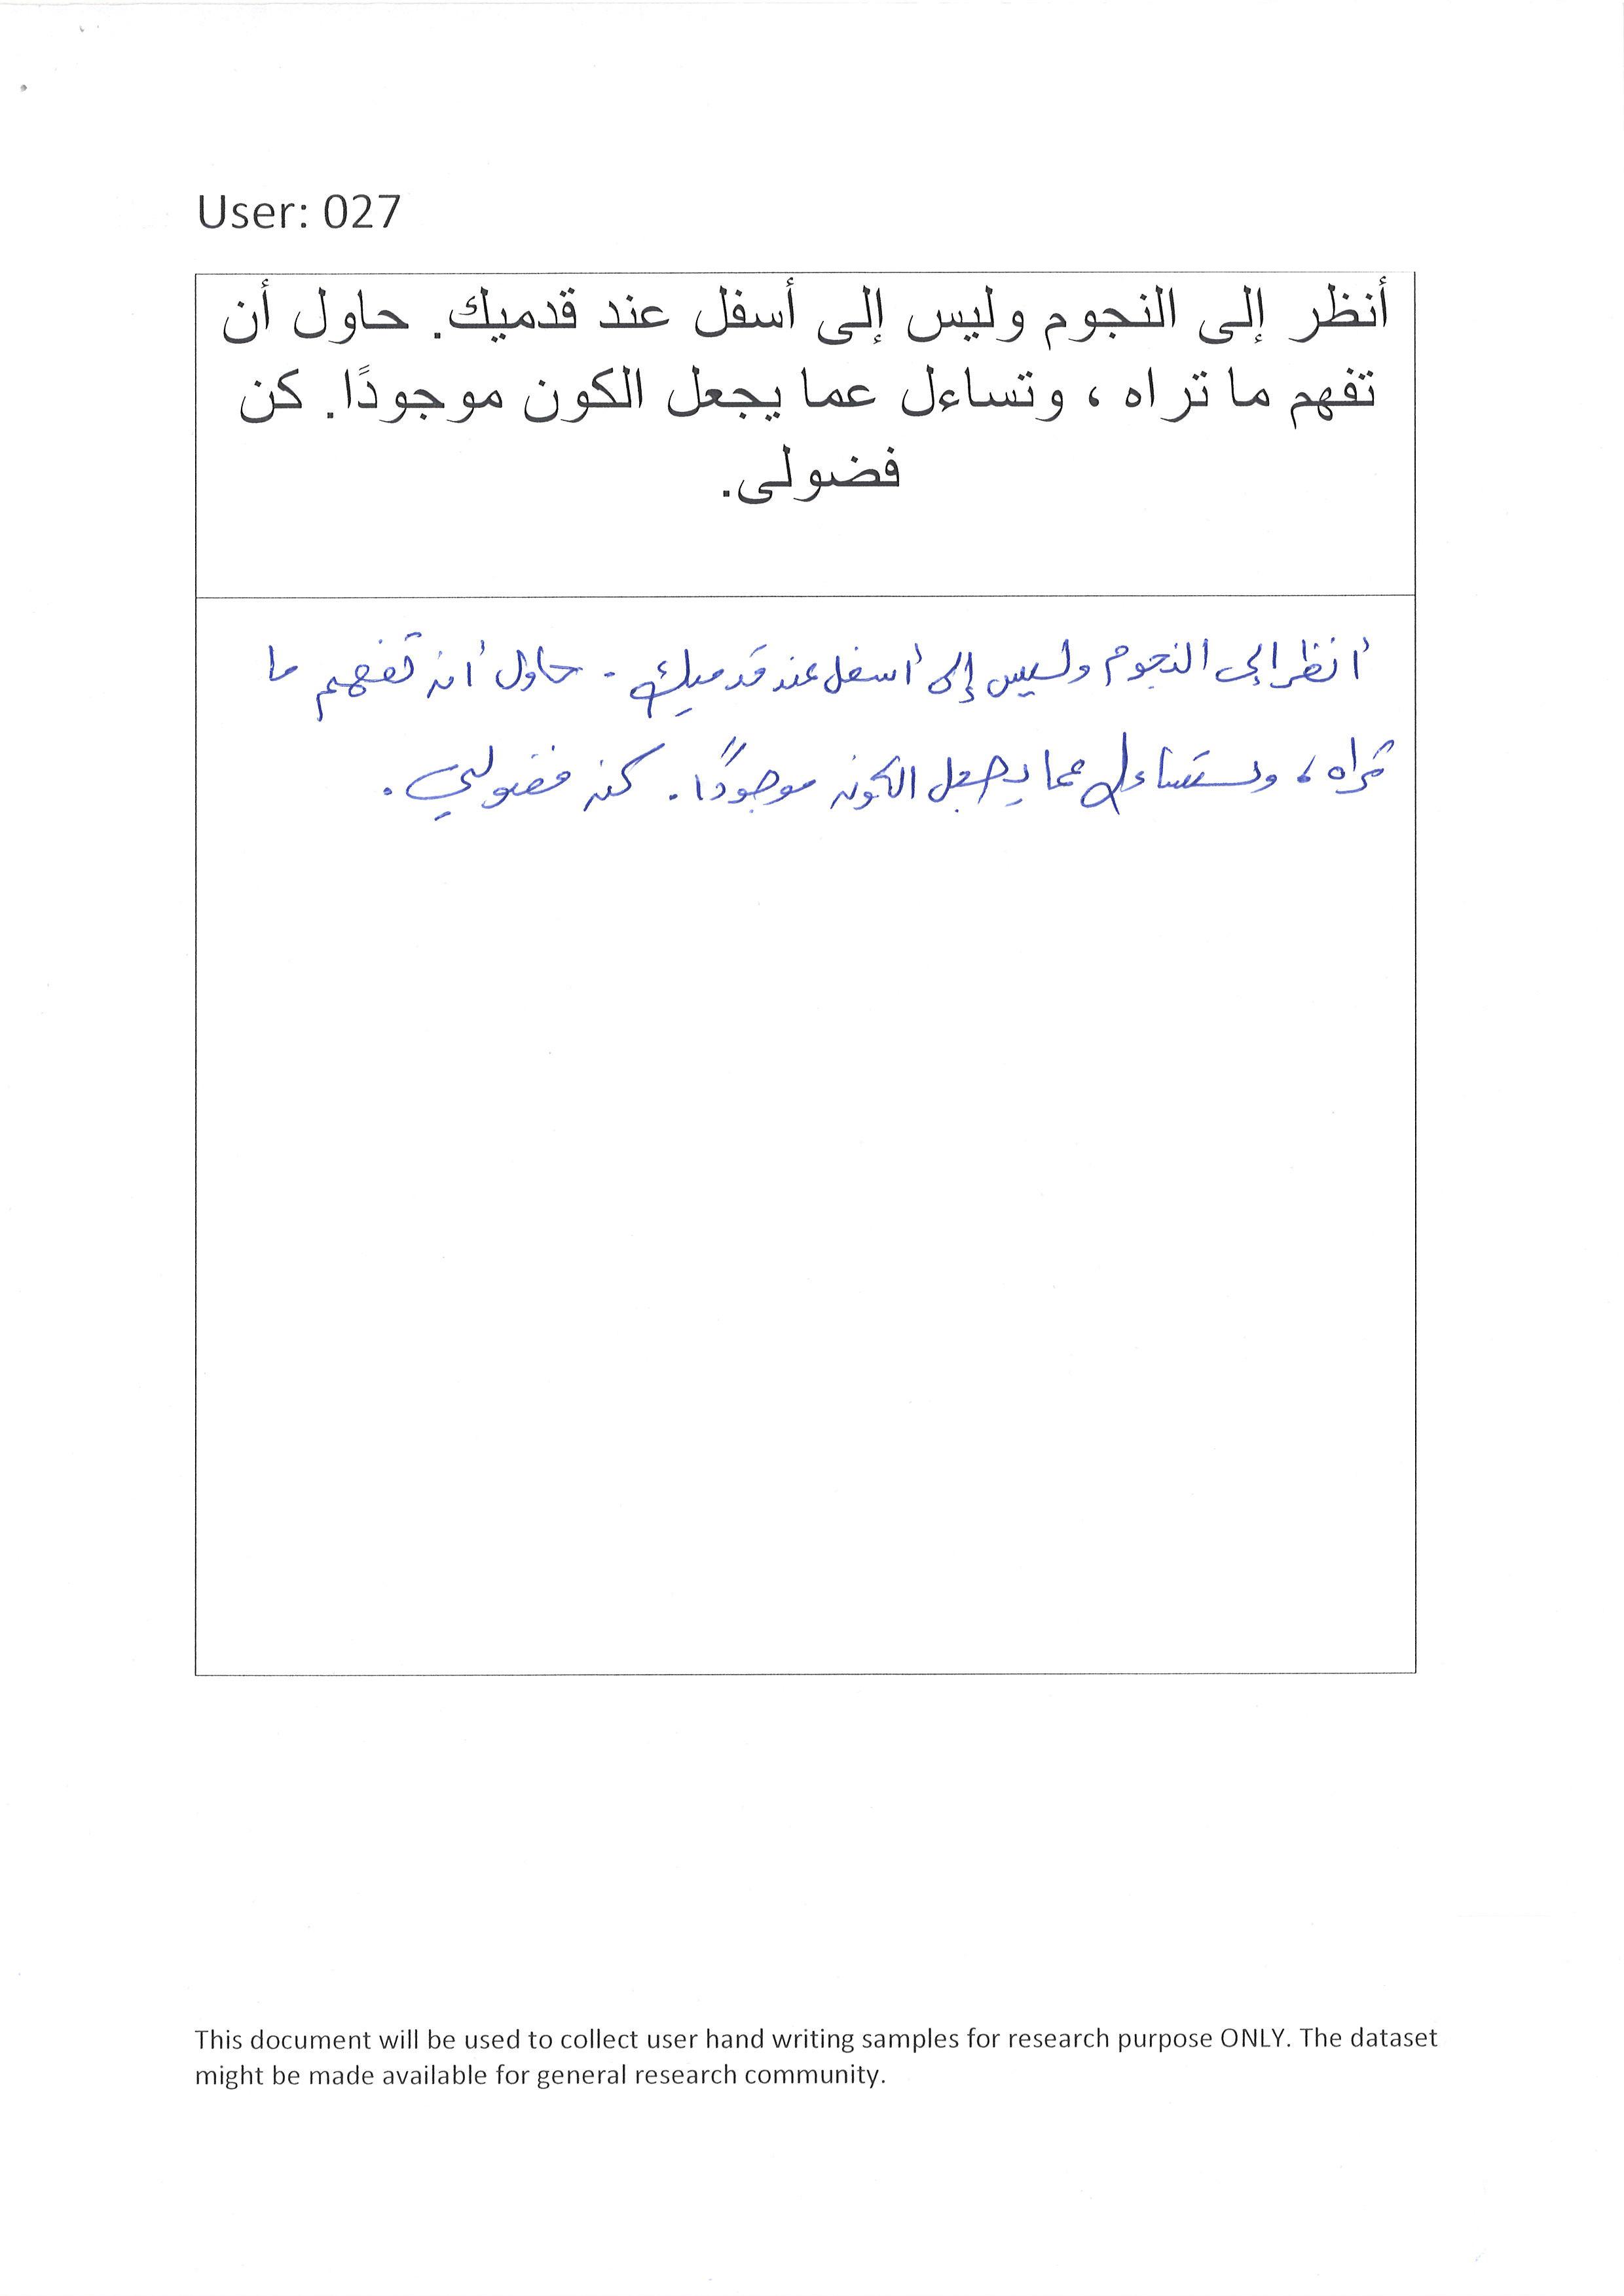 User: 027
أنظر إلى النجوم وليس إلى أسفل عند قدميك. حاول أن
تفهم ما تراه ، وتساءل عما يجعل الكون موجودًا. كن
فضولى.
أنظر إلى النجوم وليس إلى أسفل عند قدميك. حاول أن تفهم ما
تراه، وتساءل عما يجعل الكون موجودًا. كن فضولي.
This document will be used to collect user hand writing samples for research purpose ONLY. The dataset
might be made available for general research community.